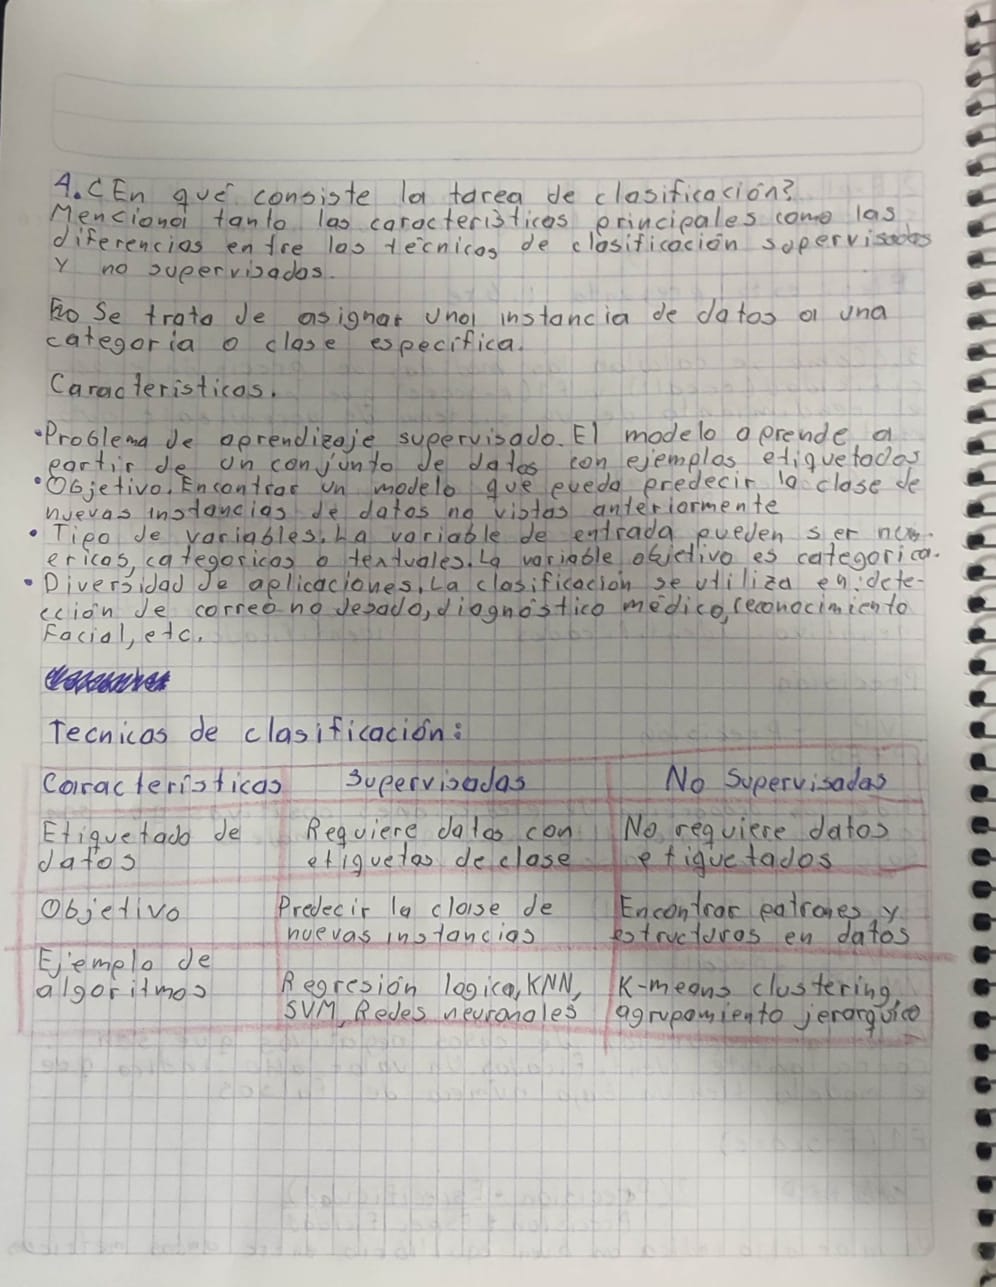 4. ¿En qué consiste la tarea de clasificación?
Menciona tanto las características principales como las
diferencias entre las técnicas de clasificación supervisadas
y no supervisadas.
Se trata de asignar una instancia de datos a una
categoria o clase especifica.
Caracteristicas.
• Problema de aprendizaje supervisado. El modelo aprende a
partir de un conjunto de datos con ejemplos etiquetados
• Objetivo. Encontrar un modelo que pueda predecir la clase de
nuevas instancias de datos no vistas anteriormente
• Tipo de variables. La variable de entrada pueden ser num-
ericas, categoricas o textuales. La variable objetivo es categorica.
• Diversidad de aplicaciones. La clasificación se utiliza en: dete-
cción de correo no desado, diagnóstico médico, reconocimiento
facial, etc.
Tecnicas de clasificación:
Características Supervisadas No Supervisadas
Etiquetado de Requiere datos con No requiere datos
datos etiquetas de clase etiquetados
Objetivo Predecir la clase de Encontrar patrones y
nuevas instancias estructuras en datos
Ejemplo de
algoritmos Regresión logica, KNN, K-means clustering,
SVM, Redes neuronales agrupamiento jerarquico